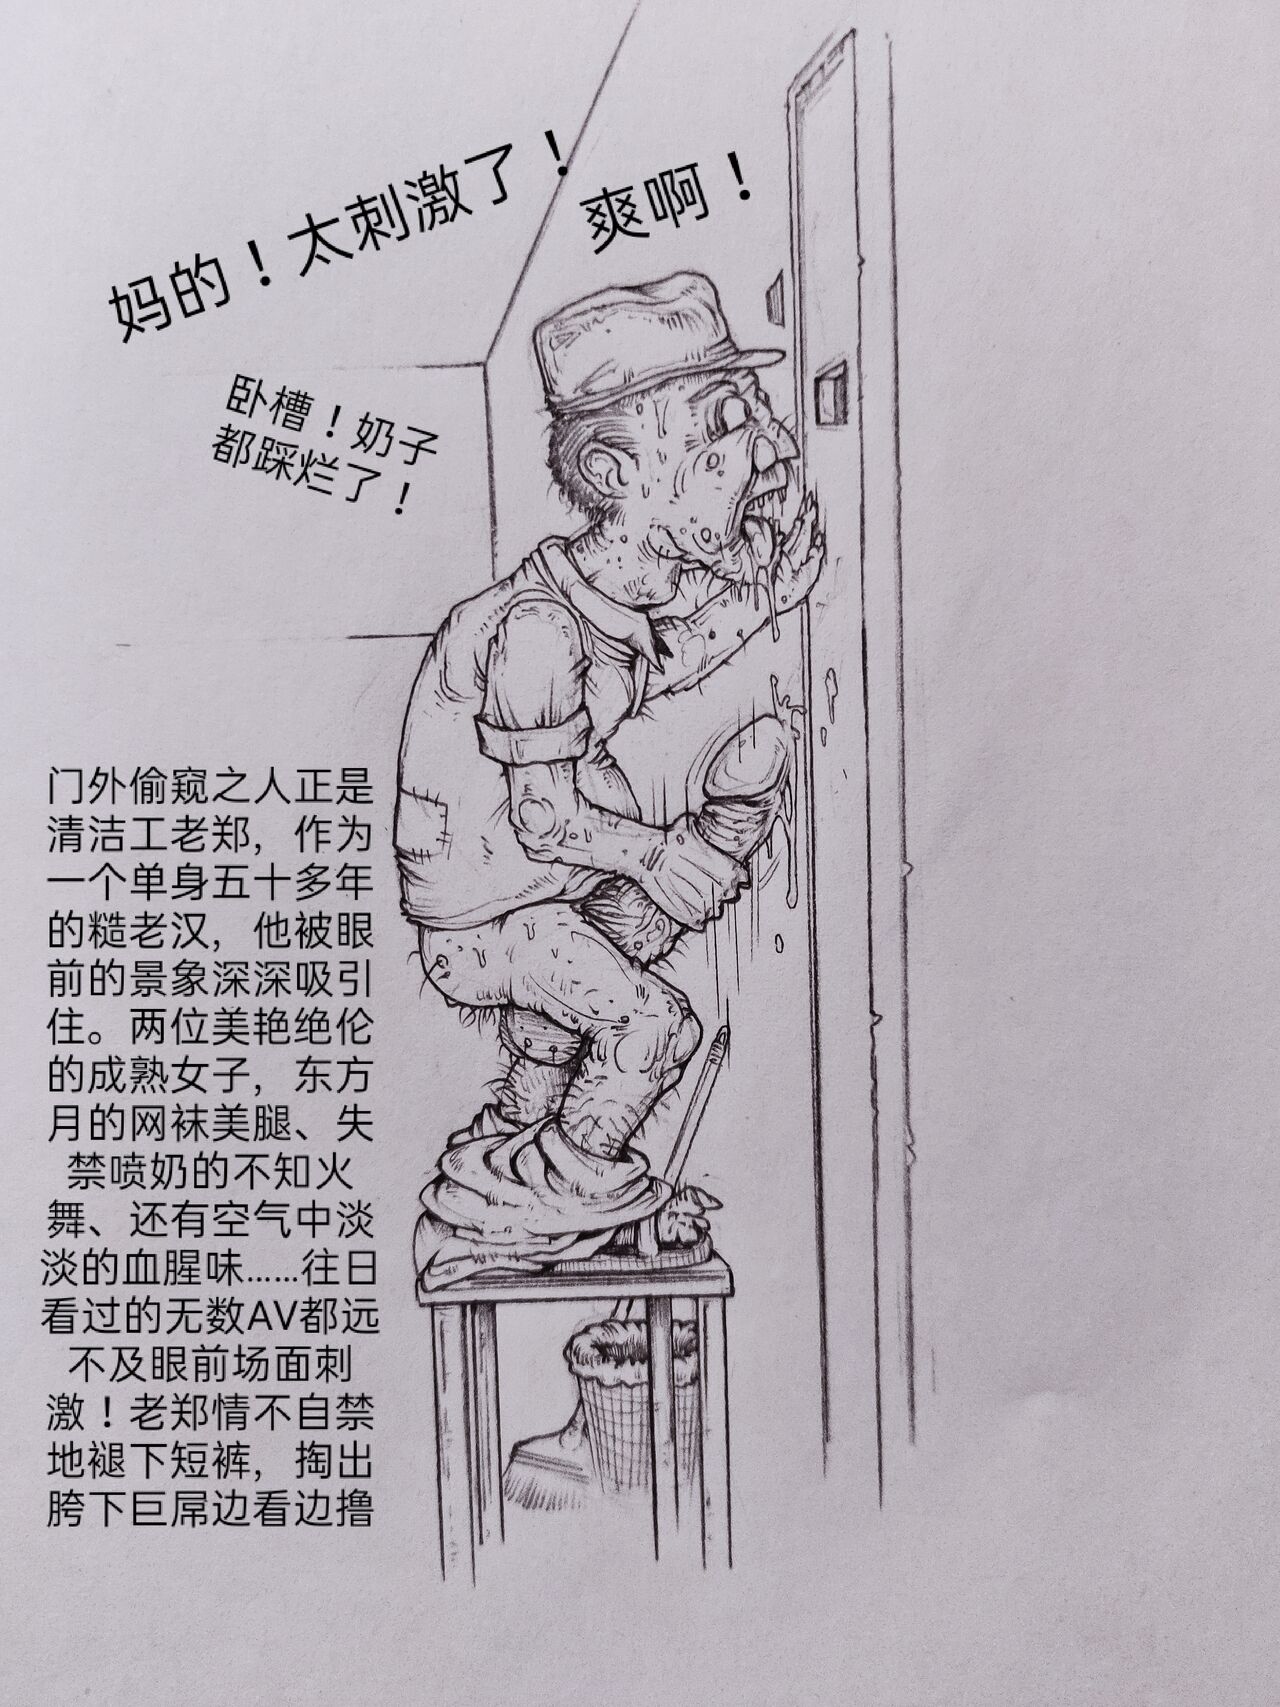 妈的！太刺激了！
爽啊！
卧槽！奶子
都踩烂了！
门外偷窥之人正是
清洁工老郑，作为
一个单身五十多年
的糙老汉，他被眼
前的景象深深吸引
住。两位美艳绝伦
的成熟女子，东方
月的网袜美腿、失
禁喷奶的不知火
舞、还有空气中淡
淡的血腥味……往日
看过的无数AV都远
不及眼前场面刺
激！老郑情不自禁
地褪下短裤，掏出
胯下巨屌边看边撸